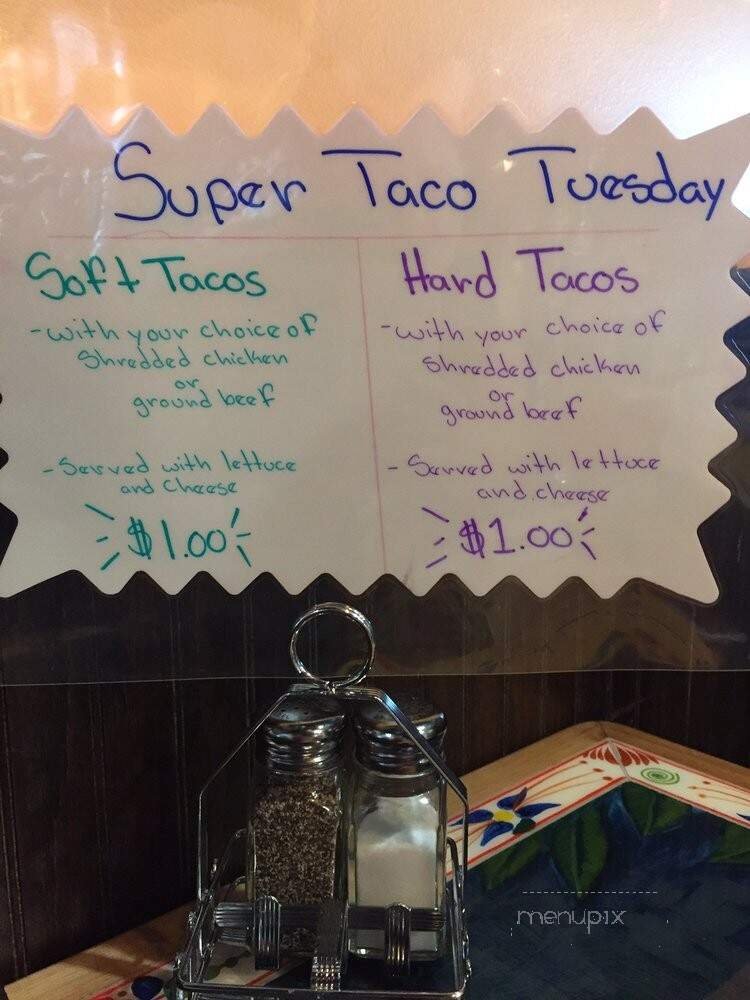 Super Taco Tuesday
Soft Tacos
-with your choice of
Shredded chicken
or
ground beef
-Served with lettuce
and cheese
$1.00
Hard Tacos
-with your choice of
Shredded chicken
or
ground beef
-Served with lettuce
and cheese
$1.00
menupix